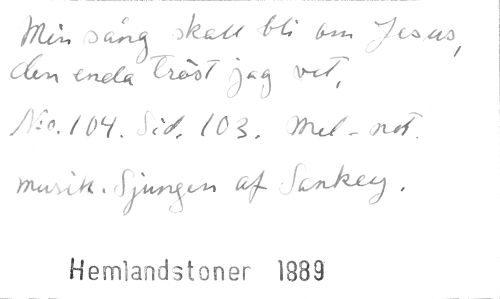 Min sång skall bli om Jesus,
den enda tröst jag vet,
No. 104. Sid. 103. Mel-not.
musik. Sjungen af Sankey.
Hemlandstoner 1889